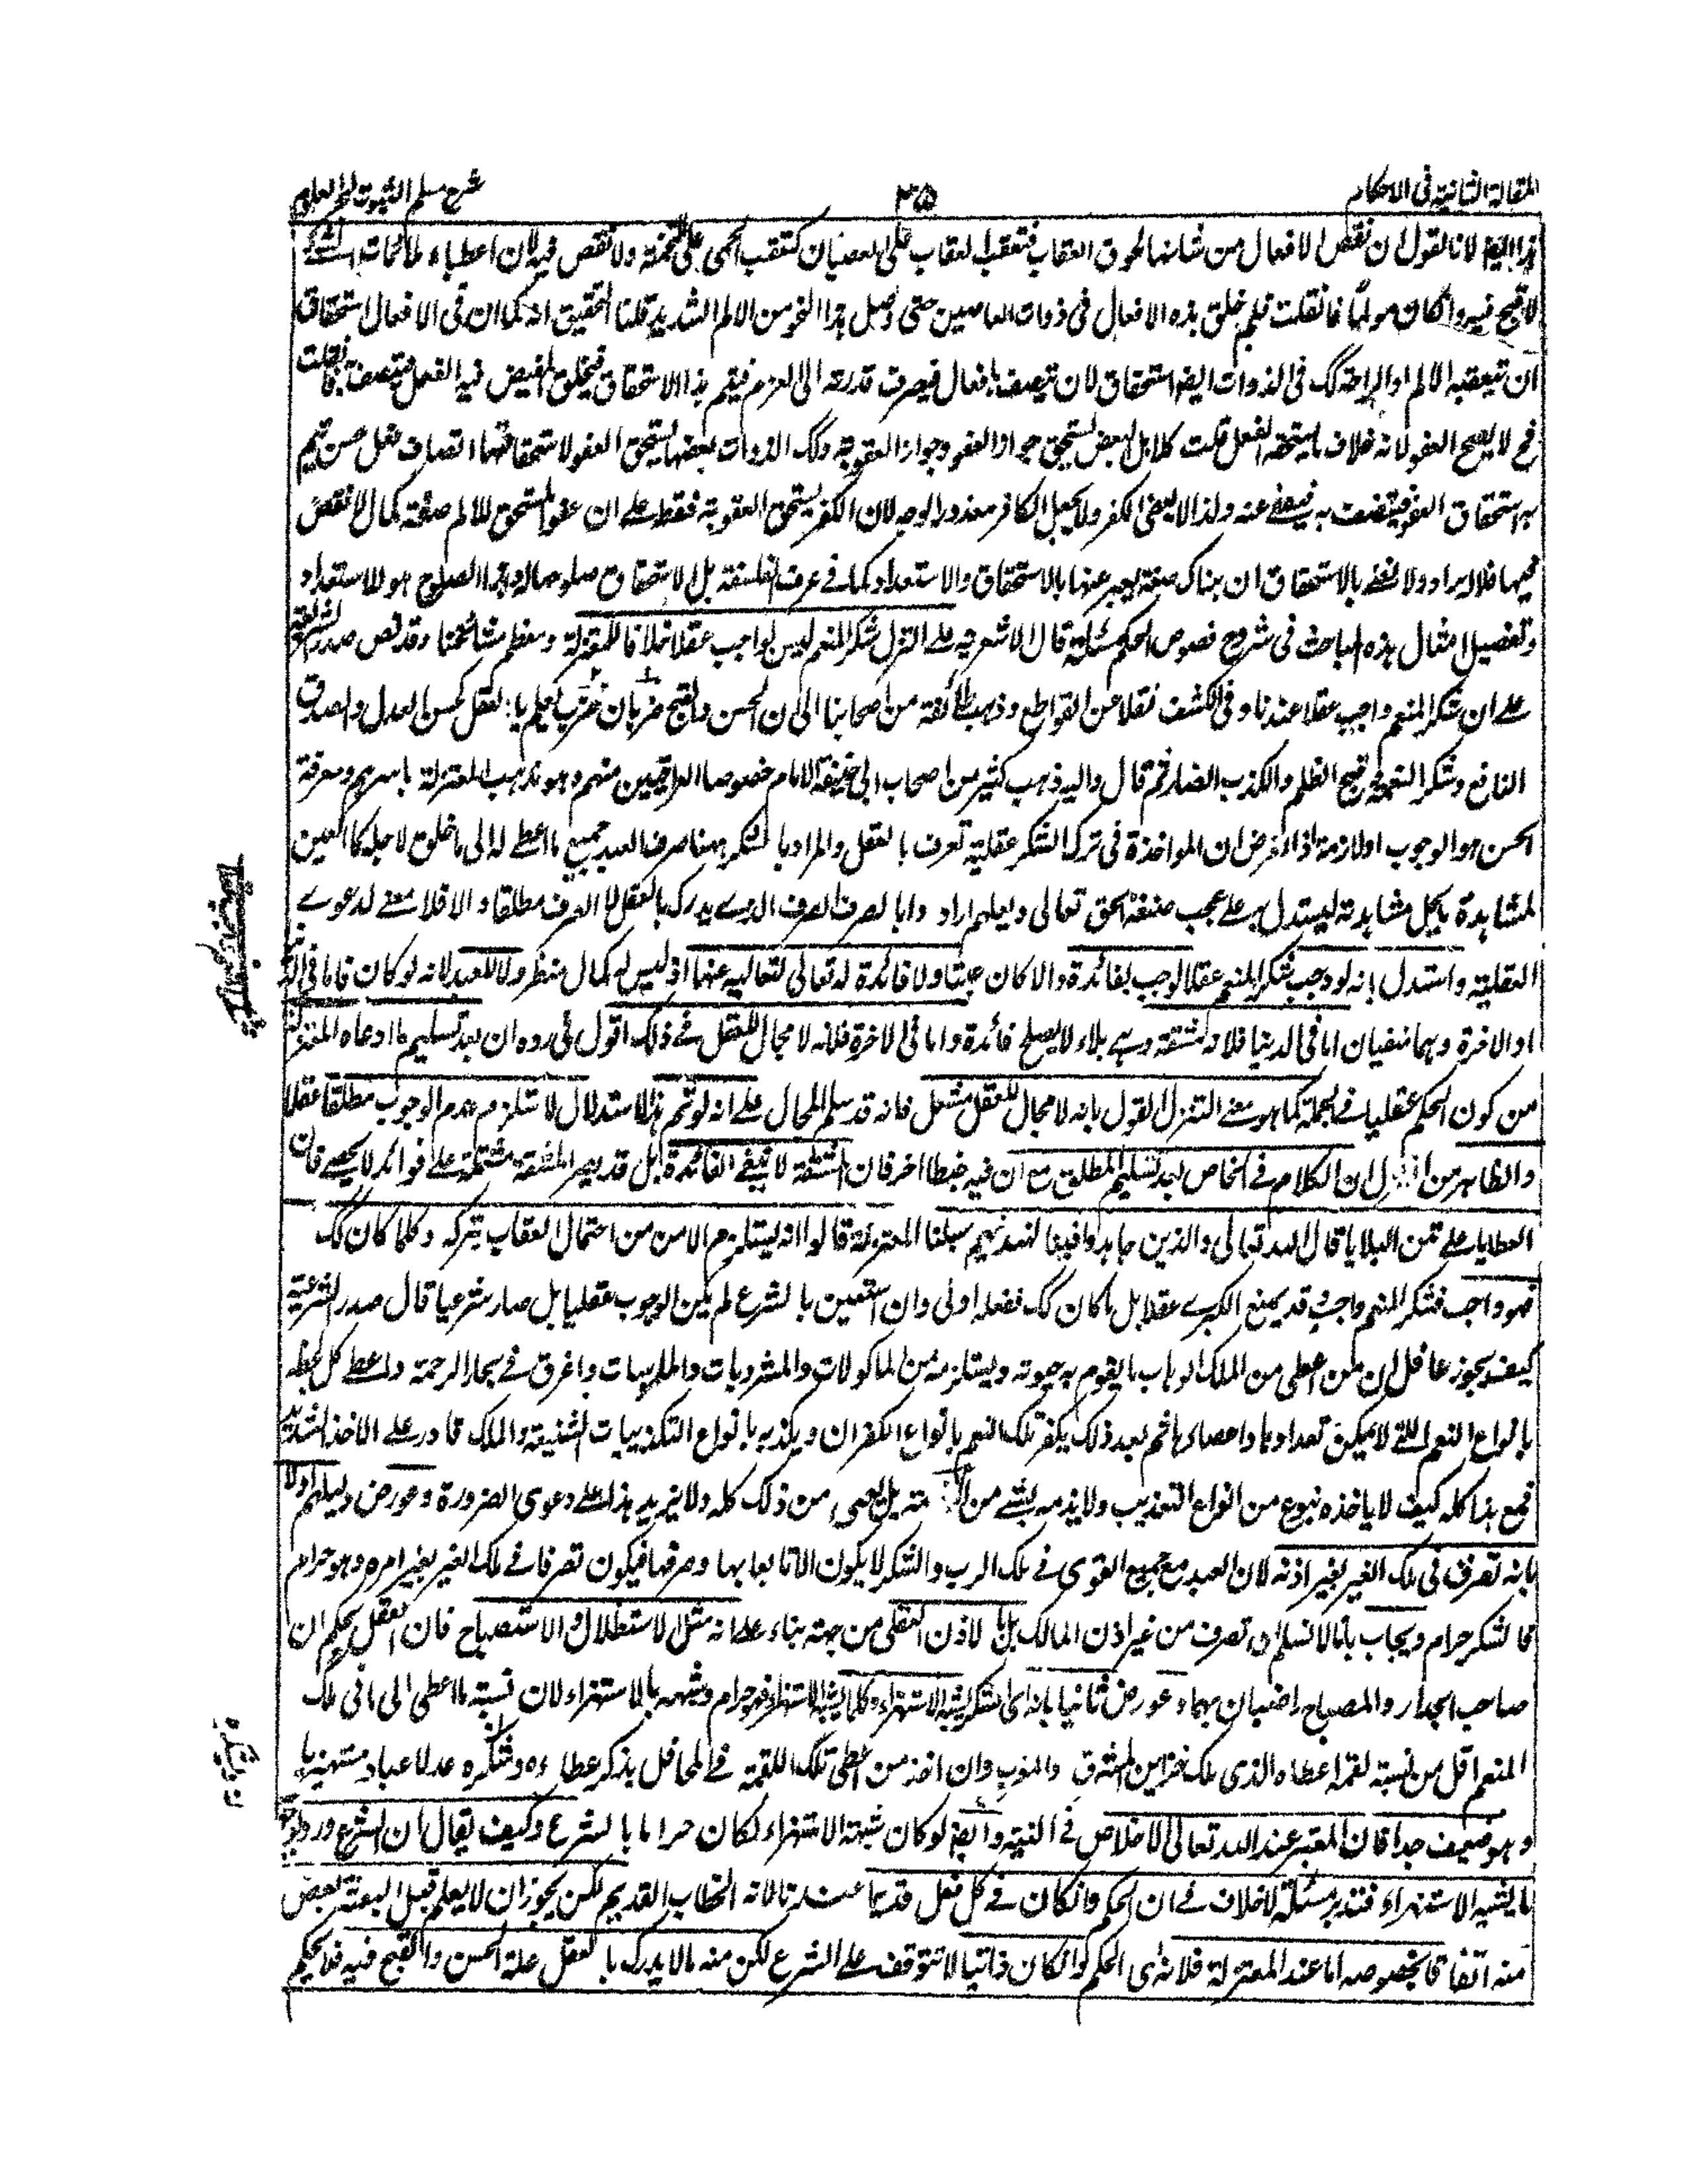 المقالة الثانية فى الاحكام
٣٥
شرح مسلم الثبوت لبحر العلوم
لانا نقول ان بعض الافعال من شانها لحوق العقاب فتعقب العقاب على العصيان كتعقب الحمى على التخمة ولا نقص فيه لان اعطاء ملائمات الشئ
لا قبح فيه وان كان مولما فان قلت فلم خلق هذه الافعال فى ذوات العاصين حتى وصل هذا النحو من الالم الشديد قلنا التحقيق انه كما ان فى الافعال استحقاق
ان تعقبه الالم او الراحة كك فى الذوات ايضا استحقاق لان تتصف بافعال فيصرف قدرته الى العزم فيتم هذا الاستحقاق فيخلق المفيض فيه الفعل فيتصف به فان قلت
فح لا يصح العفو لانه خلاف ما يستحقه الفعل قلت كلا بل البعض يستحق جواز العفو وجواز العقوبة وكك الذوات بعضها يستحق العفو لاستحقاقها اتصاف فعل حسن يتم
به استحقاق العفو فيتصف به فيعفى عنه ولذا لا يعفى الكفر ولا يجعل الكافر معذورا لوجه لان الكفر يستحق العقوبة فقط على ان عفو المستحق للالم صفة كمال لا نقص
فيها فلا ايراد ولا نعنى بالاستحقاق ان هناك صفة يعبر عنها بالاستحقاق والاستعداد كما فى عرف الفلسفة بل الاستحقاق صلوحه له وهذا الصلوح هو الاستعداد
وتفصيل امثال هذه المباحث فى شروح فصوص الحكم مسئلة قال الاشعرية على التنزل شكر المنعم ليس بواجب عقلا خلافا للمعتزلة ومعظم مشائخنا وقد نص صدر الشريعة
على ان شكر المنعم واجب عقلا عندنا وفى الكشف نقلا عن القواطع وذهب طائفة من اصحابنا الى ان الحسن والقبح ضربان ضرب يعلم بالعقل كحسن العدل والصدق
النافع وشكر النعمة وقبح الظلم والكذب الضار ثم قال واليه ذهب كثير من اصحاب ابى حنيفة الامام خصوصا العراقيين منهم وهو مذهب المعتزلة باسرهم ومعرفة
الحسن هو الوجوب او لازمه اذ الغرض ان المواخذة فى ترك الشكر عقلية تعرف بالعقل والمراد بالشكر ههنا صرف العبد جميع ما اعطى له الى ما خلق لاجله كالعين
لمشاهدة ما يحل مشاهدته ليستدل به على عجب صنعة الحق تعالى ويعلم اراد وا بالصرف الصرف الذى يدرك بالعقل لا الصرف مطلقا والا فلا معنى لدعوى
العقلية واستدل بانه لو وجب شكر المنعم عقلا لوجب بفائدة والا كان عبثا ولا فائدة له تعالى لتعاليه عنها اذ ليس له كمال منتظر ولا للعبد لانه لو كان فاما فى الدنيا
او الاخرة وهما منفيان اما فى الدنيا فلانه مشقة وهى بلاء لا يصلح فائدة واما فى الاخرة فلانه لا مجال للعقل فى ذلك اقول فى رده ان بعد تسليم ما ادعاه المعتزلة
من كون الحكم عقليا فى الجملة كما هو معنى التنزل القول بانه لا مجال للعقل مشكل فانه قد سلم المجال على انه لو تم هذا الاستدلال لاستلزم عدم الوجوب مطلقا عقلا
والظاهر من ان الكلام فى الخاص بعد تسليم المطلق مع ان فيه خبطا اخر فان المشقة لا تنفى الفائدة بل قد يصير المشقة مشتملة على فوائد لا يحصى فان
العطايا على متن البلايا قال الله تعالى والذين جاهدوا فينا لنهدينهم سبلنا المعتزلة قالوا انه يستلزم الامن من احتمال العقاب بتركه وكلما كان كك
فهو واجب فشكر المنعم واجب وقد يمنع الكبرى عقلا بل ما كان كك ففعله اولى وان استعين بالشرع لم يكن الوجوب عقليا بل صار شرعيا قال صدر الشريعة
كيف يجوز عاقل ان من اعطى من الملك الوهاب ما يقوم به حيوته ويستلزمه من الماكولات والمشروبات والملبسات واغرق فى بحار الرحمة واعطى كل لحظه
بانواع النعم التى لا يمكن تعدادها واحصائها ثم بعد ذلك يكفر تلك النعم بانواع الكفران ويكذبه بانواع التكذيبات الشنيعة والملك قادر على الاخذ الشديد
فمع هذا كله كيف لا ياخذه بنوع من انواع التعذيب ولا يذمه بشئ من بل يعفى من ذلك كله ولا يزيد هذا على دعوى الضرورة وعورض دليلهم اولا
بانه تصرف فى ملك الغير بغير اذنه لان العبد مع جميع القوى فى ملك الرب والشكر لا يكون الا باتعابها وصرفها فيكون تصرفا فى ملك الغير بغير امره وهو حرام
فالشكر حرام ويجاب بانا لا نسلم انه تصرف من غير اذن المالك بل بالاذن العقلى من جهته بناء على انه مثل الاستظلال والاستصباح فان العقل يحكم ان
صاحب الجدار والمصباح راضيان بهما وعورض ثانيا بانه اى الشكر يشبه الاستهزاء وكلما يشبه الاستهزاء فهو حرام وشبهه بالاستهزاء لان نسبة ما اعطى الى ما فى ملك
المنعم اقل من نسبة لقمة اعطاه الذى ملك خزاين المشرق والمغرب وان اخذ من اعطى تلك اللقمة فى المحافل يذكر عطاءه وشكره عد لاعبا ومستهزيا
وهو ضعيف جدا فان المعتبر عند الله تعالى الاخلاص فى النية وايضا لو كان شبهة الاستهزاء لكان حراما بالشرع وكيف يقال ان الشرع ورد بوجوب
ما يشبه الاستهزاء فتدبر مسئلة لا خلاف فى ان الحكم وان كان فى كل فعل قديما عندنا لانه الخطاب القديم لكن يجوز ان لا يعلم قبل البعثة بعض
منه اتفاقا بخصوصه اما عند المعتزلة فلانه اى الحكم وان كان ذاتيا لا تتوقف على الشرع لكن منه ما لا يدرك بالعقل علة الحسن والقبح فيه فلا يحكم